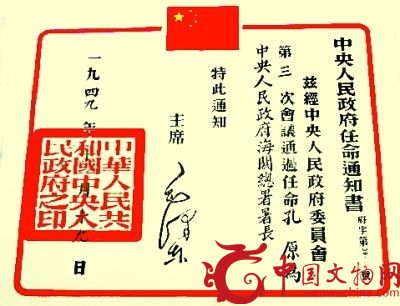 中央人民政府任命通知書
府字第
號
茲經中央人民政府委員會
第三次會議通過任命孔原為
中央人民政府海關總署署長
特此通知
主席
毛澤东
一九四九年十月十九日
中華人民共
和國中央人
民政府之印
中国文物网